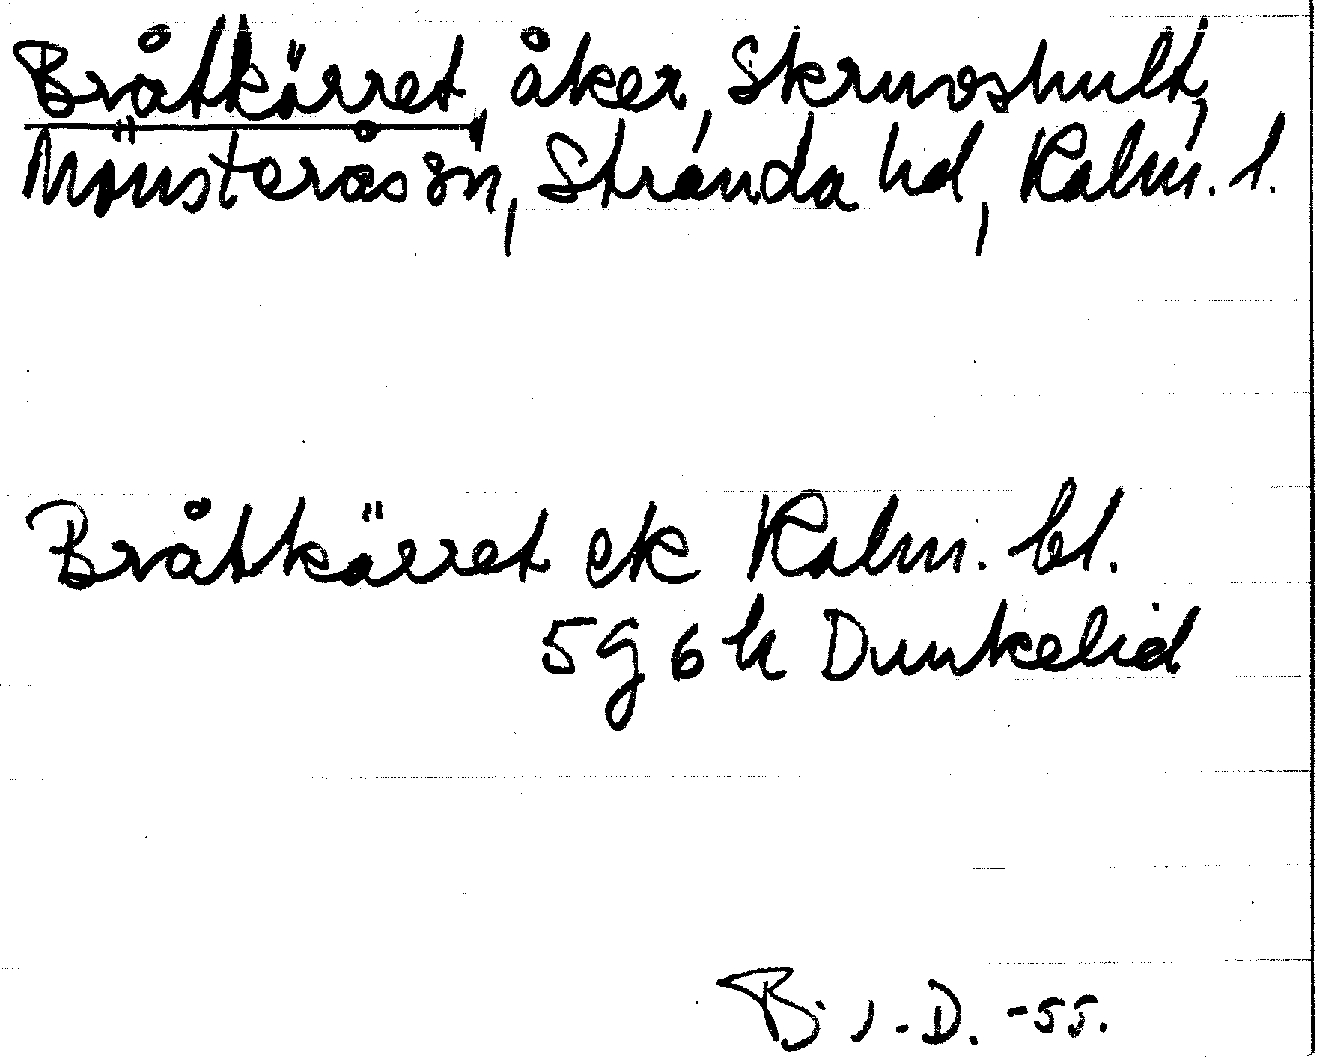 Bråtkärret, åker, Skruvshult,
Mönsterås sn, Stranda hd, Kalm. l.
Bråtkärret ek Kalm. bl.
5 g 6 h Dunkelid
B. J-D. -55.